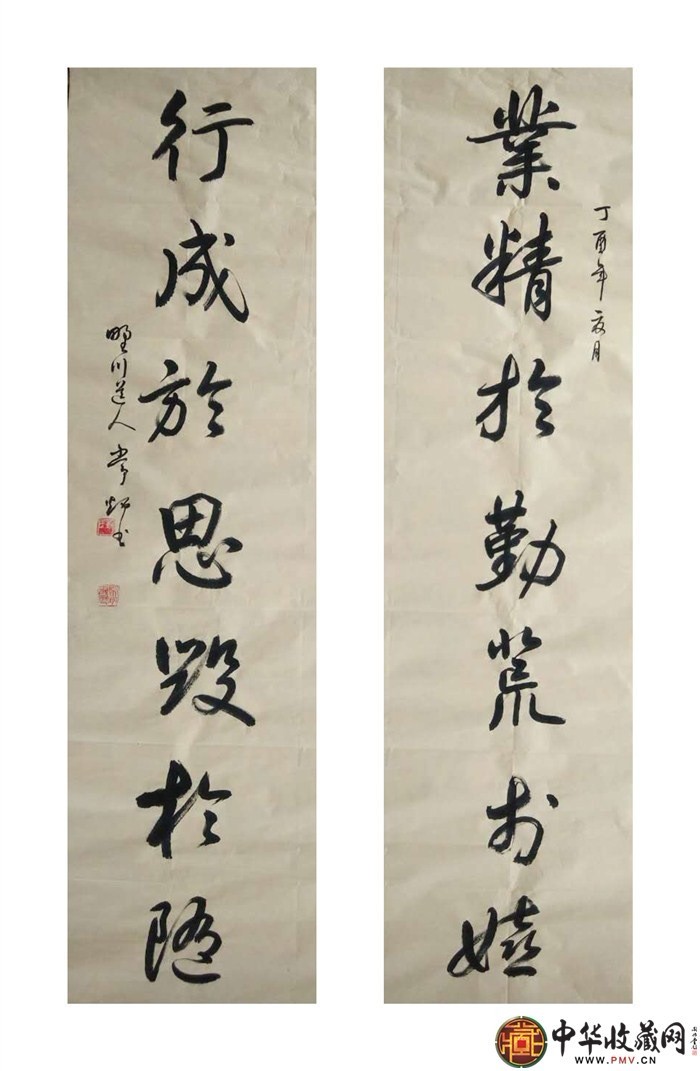 丁酉年夏月
業精於勤荒於嬉
行成於思毀於隨
野川道人 書
中华收藏网
WWW.PMV.CN